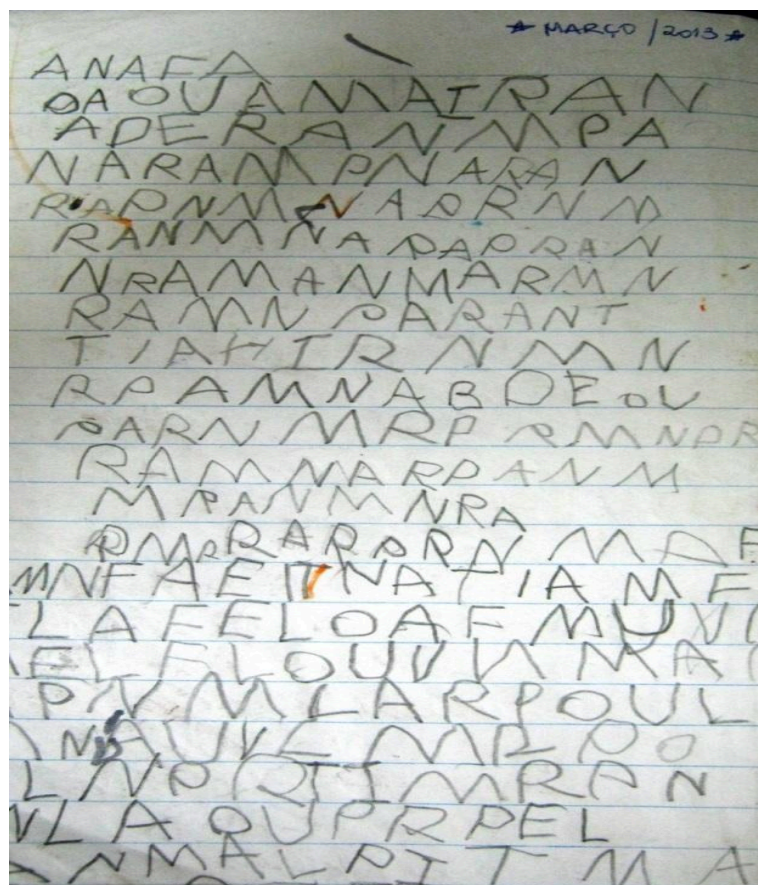 * MARÇO / 2013 *
ANAFA
OAOUAMAIRAN
ADERANIMPA
NARAMPNARAN
RAPNMNAPRNM
RANMNAPAPRAN
NRAMANMARMN
RAMNPARANT
TIAHIRNMN
RPAMNABDEOU
PARNMRPRMNPR
RAMNARPANM
MRANMNRA
RMPRARPRNMAF
MNFAEITNATIAMF
LAFELOAFMUVI
PNMLARPOUL
NAUVEMRPO
LNPRTIMRPN
NLAOUPRPEL
ANMALPITMA